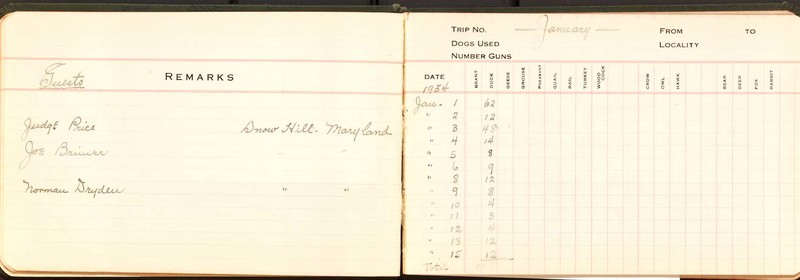 Guests REMARKS
Judge Price Snow Hill. Maryland
Joe Brimer " "
Norman Dryden " "
TRIP NO. January FROM TO
DOGS USED LOCALITY
NUMBER GUNS
DATE BRANT DUCK GEESE GROUSE PHEASANT QUAIL RAIL TURKEY WOOD COCK CROW OWL HAWK BEAR DEER FOX RABBIT
1934
Jan. 1 62
" 2 12
" 3 48
" 4 14
" 5 8
" 6 9
" 8 12
" 9 8
" 10 4
" 11 3
" 12 4
" 13 12
" 15 12
Total